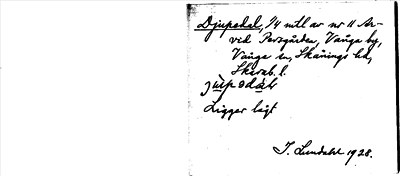 Djupedal, 1/4 mtl av nr 11 Ar-
vid Persgården, Vånga by,
Vånga sn, Skånings hd,
Skarab. l.
Ligger lågt
J. Lundahl 1928.